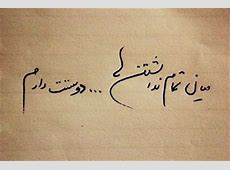 میان تمام نداشتن ها ... دوستت دارم